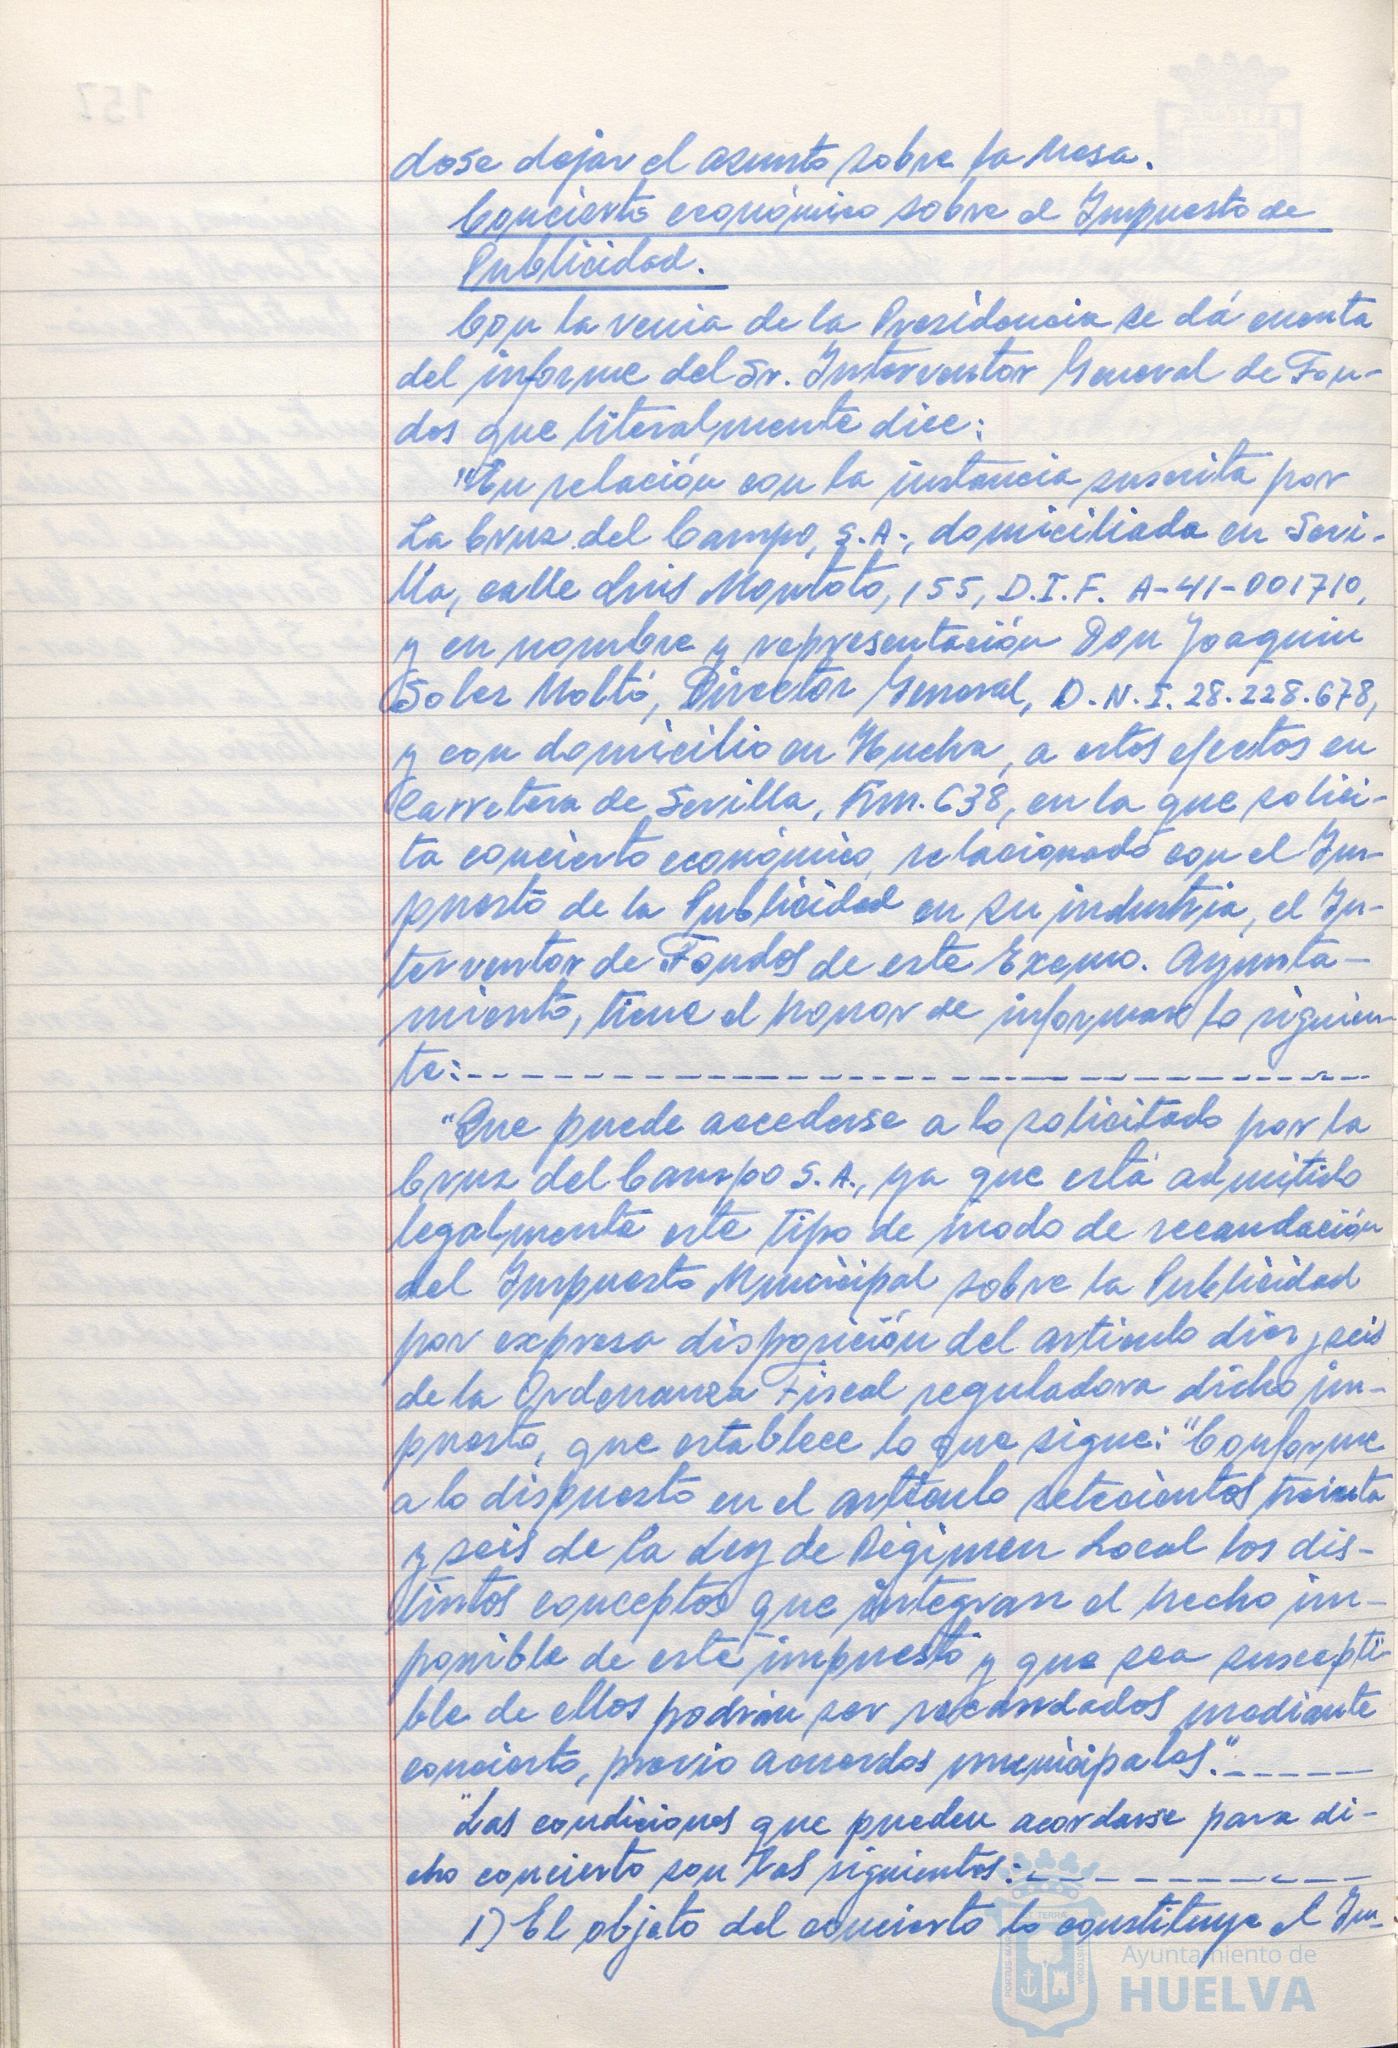 dose dejar el asunto sobre la Mesa.
Concierto económico sobre el Impuesto de
Publicidad.
Con la venia de la Presidencia se dá cuenta
del informe del Sr. Interventor General de Fon-
dos que literalmente dice:
"En relación con la instancia suscrita por
La Cruz del Campo, S.A., domiciliada en Sevi-
lla, calle Luis Montoto, 155, D.I.F. A-41-001710,
y en nombre y representación Don Joaquin
Soler Moltó, Director General, D.N.I. 28.228.678,
y con domicilio en Huelva, a estos efectos en
Carretera de Sevilla, Km. 638, en la que solici-
ta concierto económico, relacionado con el Im-
puesto de la Publicidad en su industria, el In-
terventor de Fondos de este Excmo. Ayunta-
miento, tiene el honor de informar lo siguien-
te:
"Que puede accederse a lo solicitado por la
Cruz del Campo S.A., ya que está admitido
legalmente este tipo de modo de recaudación
del Impuesto Municipal sobre la Publicidad
por expresa disposición del artículo diez y seis
de la Ordenanza Fiscal reguladora dicho im-
puesto, que establece lo que sigue: "Conforme
a lo dispuesto en el artículo setecientos treinta
y seis de la Ley de Régimen Local los dis-
tintos conceptos que integran el hecho im-
ponible de este impuesto y que sea suscepti-
ble de ellos podrán ser recaudados mediante
concierto, previo acuerdos municipales."
"Las condiciones que pueden acordarse para di-
cho concierto son las siguientes:
1) El objeto del concierto lo constituye el Im-
Ayuntamiento de
HUELVA
157